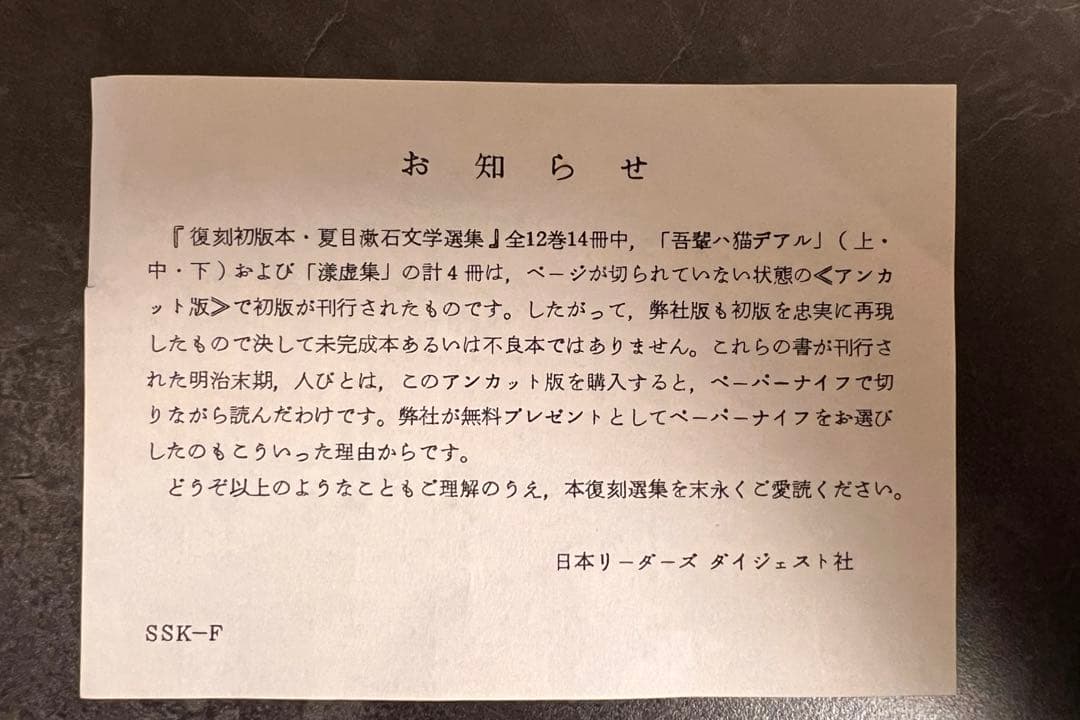 お知らせ
『復刻初版本・夏目漱石文学選集』全12巻14冊中，「吾輩ハ猫デアル」（上・
中・下）および「漾虚集」の計４冊は，ページが切られていない状態の≪アンカ
ット版≫で初版が刊行されたものです。したがって，弊社版も初版を忠実に再現
したもので決して未完成本あるいは不良本ではありません。これらの書が刊行さ
れた明治末期，人びとは，このアンカット版を購入すると，ペーパーナイフで切
りながら読んだわけです。弊社が無料プレゼントとしてペーパーナイフをお選び
したのもこういった理由からです。
どうぞ以上のようなこともご理解のうえ，本復刻選集を末永くご愛読ください。
日本リーダーズ ダイジェスト社
SSK－F